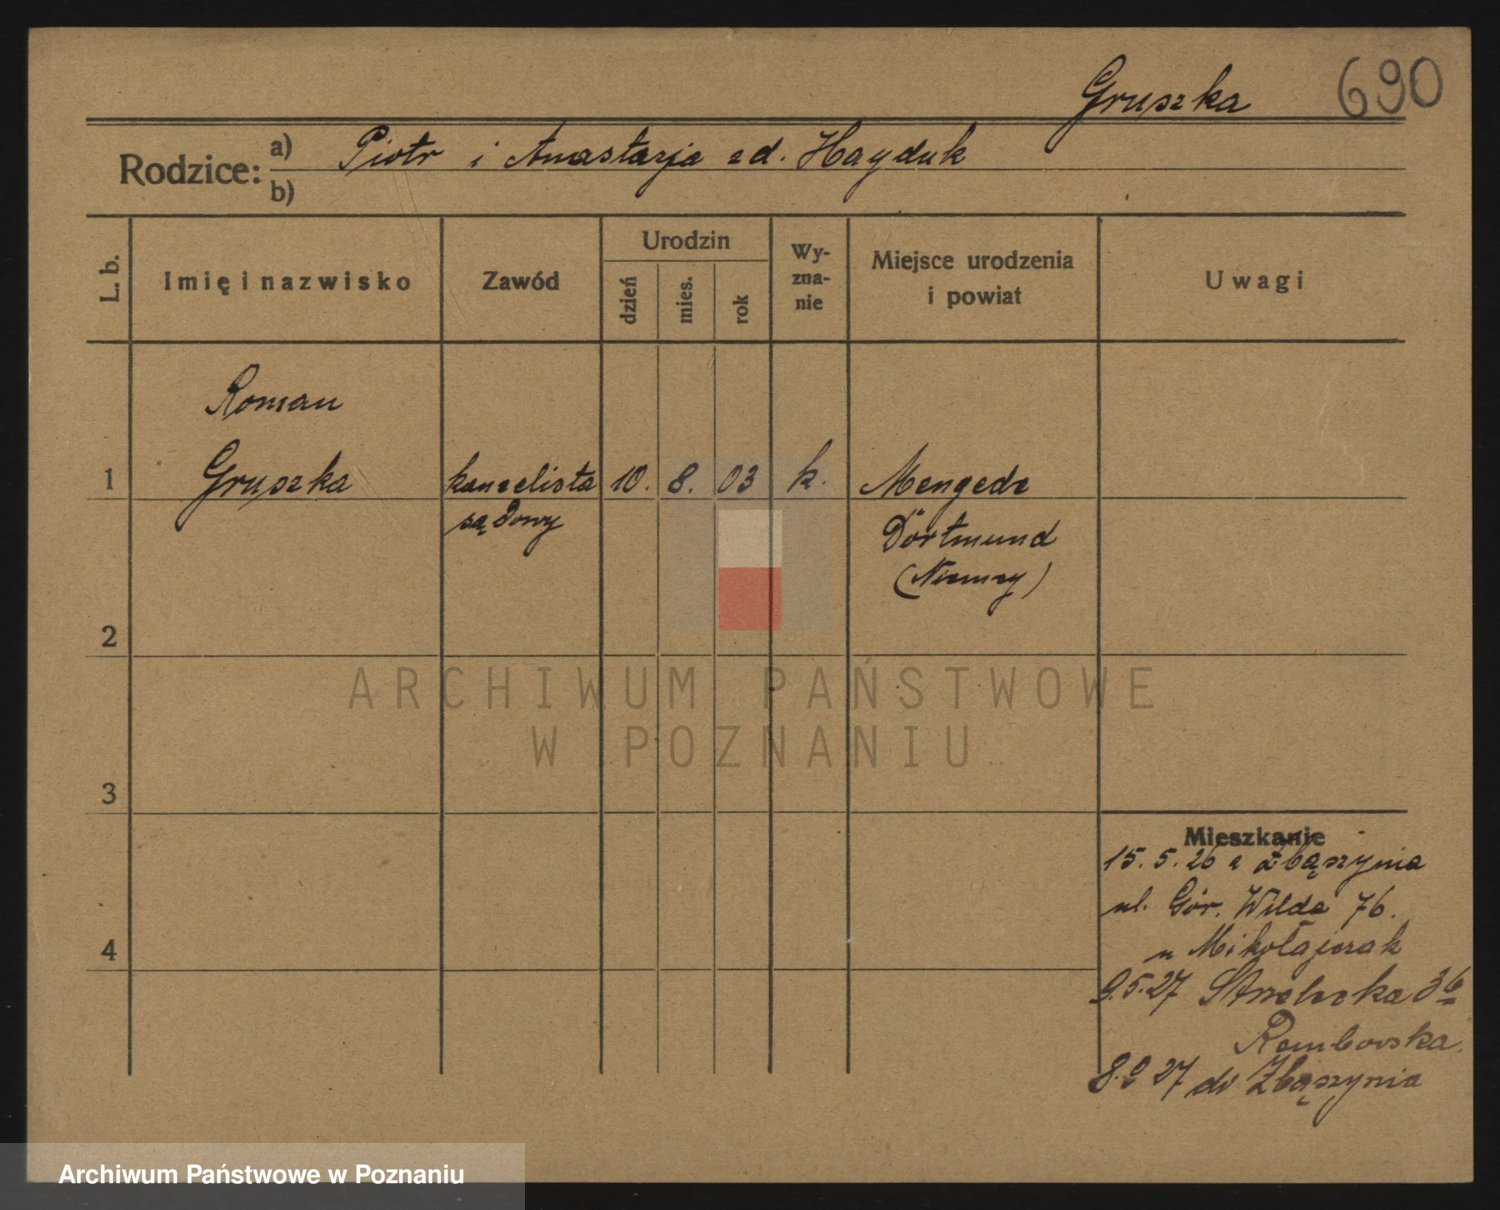 Gruszka 690
Rodzice: a) Piotr i Anastazja zd. Hayduk
b)
L. b.
Imię i nazwisko
Zawód
Urodzin
dzień
mies.
rok
Wy-
zna-
nie
Miejsce urodzenia
i powiat
Uwagi
Roman
1 Gruszka kancelista 10. 8. 03 k. Mengede
sądowy Dortmund
(Niemcy)
2
3
4
ARCHIWUM PAŃSTWOWE
W POZNANIU
Mieszkanie
15. 5. 26 z Zbąszynia
ul. Gór. Wilda 76.
u Mikołajczak
9.5.27 Strzelecka 36
Rembowska.
8.9 27 do Zbąszynia
Archiwum Państwowe w Poznaniu